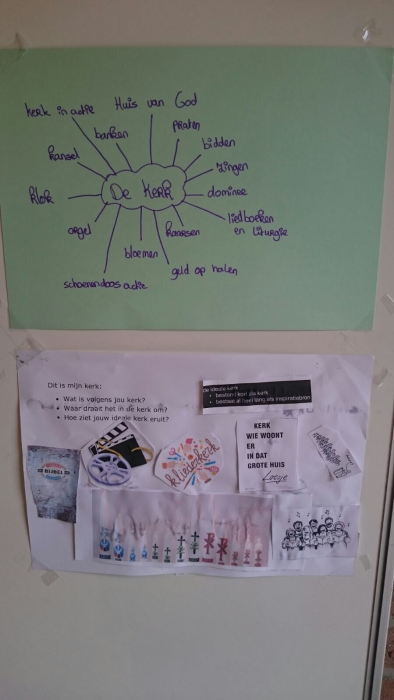 kerk in actie
Huis van God
banken
praten
bidden
kansel
zingen
Klok
De Kerk
dominee
liedboeken
en liturgie
orgel
kaarsen
bloemen
geld op halen
schoenendoos actie
Dit is mijn kerk:
• Wat is volgens jou kerk?
• Waar draait het in de kerk om?
• Hoe ziet jouw ideale kerk eruit?
de ideale kerk
BIJBEL
kliederkerk
KERK
WIE WOONT
ER
IN DAT
GROTE HUIS
Loesje